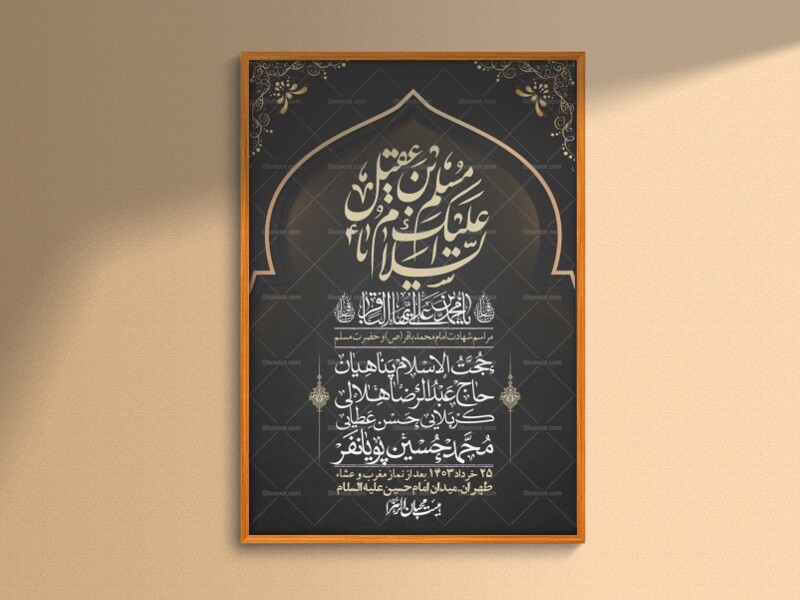 السلام علیک یا مسلم بن عقیل
یا محمد بن علی ایها الباقر
مراسم شهادت امام محمد باقر (ص) و حضرت مسلم
حجت الاسلام پناهیان
حاج عبدالرضا هلالی
کربلایی حسن عطایی
محمد حسین پویانفر
۲۵ خرداد ۱۴۰۳ بعد از نماز مغرب و عشاء
طهران، میدان امام حسین علیه السلام
هیئت محبان الزهرا
Ghonoot.com